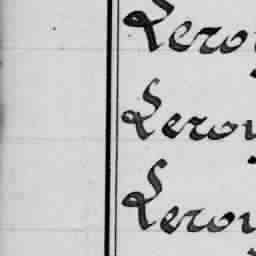 Leroy
Leroy
Leroy